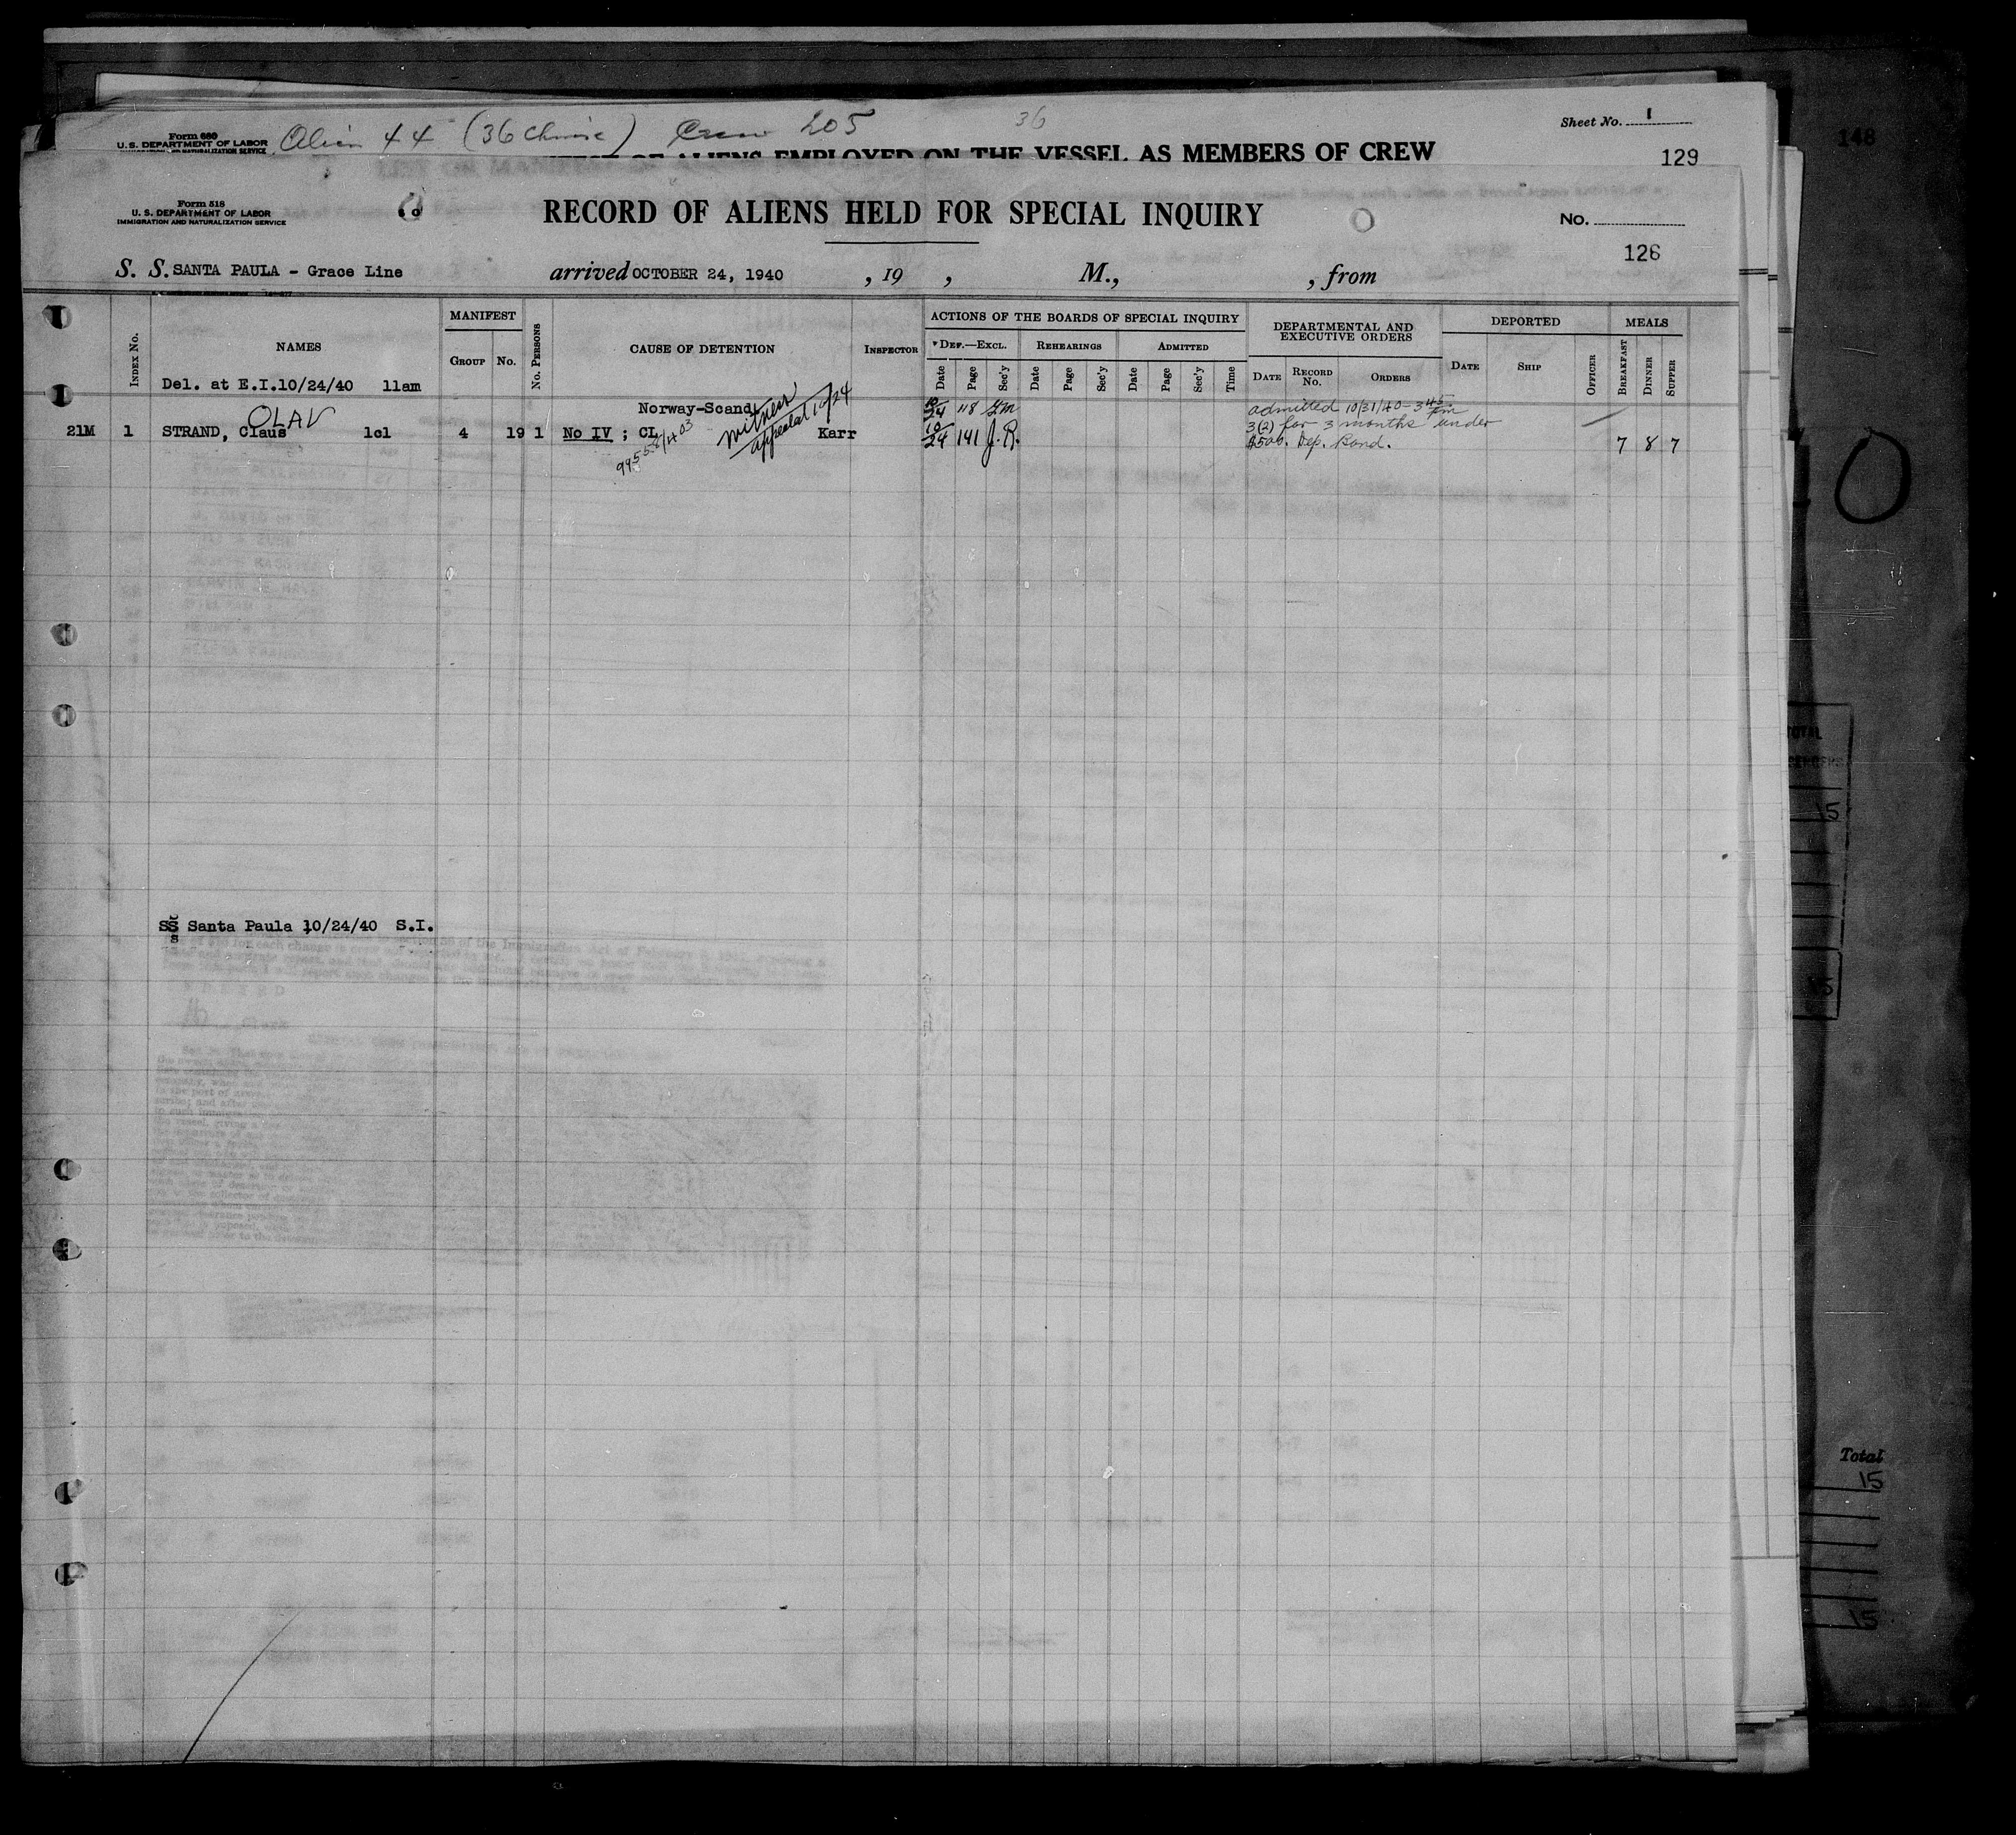 Form 680
U. S. DEPARTMENT OF LABOR
IMMIGRATION AND NATURALIZATION SERVICE
Alien 44 (36 Chinese) Crew 205 36
Sheet No. 1
OF ALIENS EMPLOYED ON THE VESSEL AS MEMBERS OF CREW
129
148
Form 518
U. S. DEPARTMENT OF LABOR
IMMIGRATION AND NATURALIZATION SERVICE
RECORD OF ALIENS HELD FOR SPECIAL INQUIRY
No.
126
S. S. SANTA PAULA - Grace Line arrived OCTOBER 24, 1940 , 19 , M., , from
INDEX No. NAMES MANIFEST GROUP No. No. PERSONS CAUSE OF DETENTION INSPECTOR
ACTIONS OF THE BOARDS OF SPECIAL INQUIRY
*DEF.—EXCL. REHEARINGS ADMITTED
Date Page Sec'y Date Page Sec'y Date Page Sec'y Time
DEPARTMENTAL AND EXECUTIVE ORDERS
DATE RECORD No. ORDERS
DEPORTED
DATE SHIP OFFICER
MEALS
BREAKFAST DINNER SUPPER
Del. at E.I.10/24/40 11am
OLAV Norway-Scand 10/24 118 admitted 10/31/40 - 3 45 pm
21M 1 STRAND, Claus 1cl 4 19 1 No IV ; CL Karr 10/24 141 J.R. 3(2) for 3 months under
witness
appealed 10/24
$500. Dep. Bond. 7 8 7
SS Santa Paula 10/24/40 S.I.
TOTAL
15
15
Total
15
15